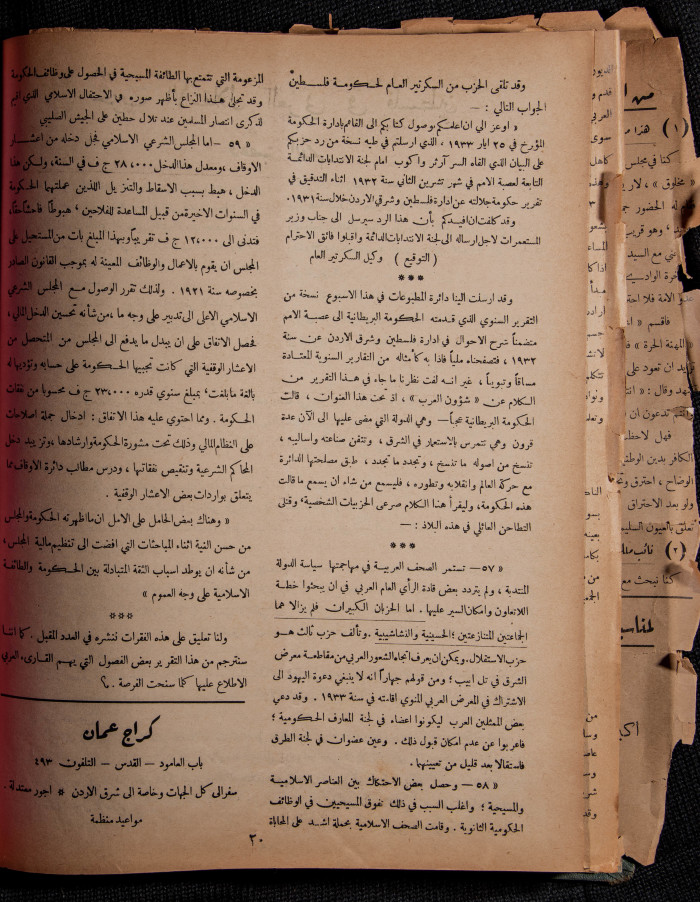 وقد تلقى الحزب من السكرتير العام لحكومة فلسطين
الجواب التالي : —
« اوعز الي ان اعلمكم بوصول كتابكم الى القائم بادارة الحكومة
المؤرخ في ٢٥ ايار ١٩٣٣ ، الذي ارسلتم في طيه نسخة من رد حزبكم
على البيان الذي القاه السر آرثر واكوب امام لجنة الانتدابات الدائمة
التابعة لعصبة الامم في شهر تشرين الثاني سنة ١٩٣٢ اثناء التدقيق في
تقرير حكومة جلالته عن ادارة فلسطين وشرقي الاردن خلال سنة ١٩٣١.
وقد كلفت ان افيدكم بأن هذا الرد سيرسل الى جناب وزير
المستعمرات لاجل ارساله الى لجنة الانتدابات الدائمة واقبلوا فائق الاحترام
( التوقيع ) وكيل السكرتير العام
***
وقد ارسلت الينا دائرة المطبوعات في هذا الاسبوع نسخة من
التقرير السنوي الذي قدمته الحكومة البريطانية الى عصبة الامم
متضمناً شرح الاحوال في ادارة فلسطين وشرق الاردن عن سنة
١٩٣٢ ، فتصفحناه ملياً فاذا به كأمثاله من التقارير السنوية المعتادة
مساقاً وتبويباً ، غير انه لفت نظرنا ما جاء في هذا التقرير من
الكلام عن « شؤون العرب » ، اذ تحت هذا العنوان ، قالت
الحكومة البريطانية عجباً — وهي الدولة التي مضى عليها الى الآن عدة
قرون وهي تتمرس بالاستعمار في الشرق ، وتتقن صناعته واساليبه ،
تنسخ من اصوله ما تنسخ ، وتجدد ما تجدد ، طبق مصلحتها الدائرة
مع حركة العالم وانقلابه وتطوره ، فليسمع من شاء ان يسمع ما قالت
هذه الحكومة، وليقرأ هذا الكلام صرعى الحزبيات الشخصية، وقتلى
التطاحن العائلي في هذه البلاد : —
***
« ٥٧ — تستمر الصحف العربية في مهاجمتها سياسة الدولة
المنتدبة ، ولم يتردد بعض قادة الرأي العام العربي في ان يبحثوا خطة
اللاتعاون وامكان السير عليها . اما الحزبان الكبيران فلم يزالا هما
الجماعتين المتنازعتين ؛ الحسينية والنشاشيبية . وتألف حزب ثالث هو
حزب الاستقلال . ويمكن ان يعرف اتجاه الشعور العربي من مقاطعة معرض
الشرق في تل ابيب ؛ ومن قولهم جهاراً انه لا ينبغي دعوة اليهود الى
الاشتراك في المعرض العربي المنوي اقامته في سنة ١٩٣٣ . وقد دعي
بعض الممثلين العرب ليكونوا اعضاء في لجنة المعارف الحكومية ؛
فاعربوا عن عدم امكان قبول ذلك . وعين عضوان في لجنة الطرق
فاستقالا بعد قليل من تعيينهما .
« ٥٨ — وحصل بعض الاحتكاك بين العناصر الاسلامية
والمسيحية ؛ واغلب السبب في ذلك تفوق المسيحيين في الوظائف
الحكومية الثانوية . وقامت الصحف الاسلامية بحملة اشد على المحاباة
المزعومة التي تتمتع بها الطائفة المسيحية في الحصول على وظائف الحكومة
وقد تجلى هذا النزاع بأظهر صوره في الاحتفال الاسلامي الذي اقيم
لذكرى انتصار المسلمين عند تلال حطين على الجيش الصليبي
« ٥٩ — اما المجلس الشرعي الاسلامي فجل دخله من اعشار
الاوقاف ، ومعدل هذا الدخل ٢٨،٠٠٠ ج ف في السنة، ولكن هذا
الدخل ، هبط بسبب الاسقاط والتنزيل اللذين عملتهما الحكومة
في السنوات الاخيرة من قبيل المساعدة للفلاحين ، هبوطاً فاحشاً جداً،
فتدنى الى ١٢،٠٠٠ ج ف تقريباً وبهذا المبلغ بات من المستحيل على
المجلس ان يقوم بالاعمال والوظائف المعينة له بموجب القانون الصادر
بخصوصه سنة ١٩٢١ . ولذلك تقرر الوصول مع المجلس الشرعي
الاسلامي الاعلى الى تدبير على وجه ما ، من شأنه تحسين الدخل المالي ،
فحصل الاتفاق على ان يبدل ما يدفع الى المجلس من المتحصل من
الاعشار الوقفية التي كانت تجبيها الحكومة على حسابه وتؤديها له
بالغة ما بلغت ، بمبلغ سنوي قدره ٢٣،٠٠٠ ج ف محسوبا من نفقات
الحكومة . ومما احتوى عليه هذا الاتفاق : ادخال جملة اصلاحات
على النظام المالي وذلك تحت مشورة الحكومة وارشادها ، وتزييد دخل
المحاكم الشرعية وتنقيص نفقاتها ، ودرس مطالب دائرة الاوقاف مما
يتعلق بواردات بعض الاعشار الوقفية .
« وهناك بعض الحامل على الامل ان ما اظهرته الحكومة والمجلس
من حسن النية اثناء المباحثات التي افضت الى تنظيم مالية المجلس ،
من شأنه ان يوطد اسباب الثقة المتبادلة بين الحكومة والطائفة
الاسلامية على وجه العموم »
***
ولنا تعليق على هذه الفقرات ننشره في العدد المقبل . كما اننا
سنترجم من هذا التقرير بعض الفصول التي يهم القارىء العربي
الاطلاع عليها كلما سنحت الفرصة . م؟
كراج عمان
باب العامود — القدس — التلفون ٤٩٣
سفر الى كل الجهات وخاصة الى شرق الاردن * اجور معتدلة .
مواعيد منظمة
٢٠